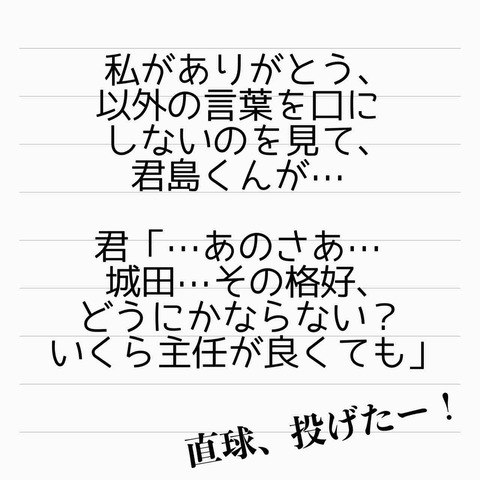 私がありがとう、
以外の言葉を口に
しないのを見て、
君島くんが…
君「…あのさあ…
城田…その格好、
どうにかならない？
いくら主任が良くても」
直球、投げたー！